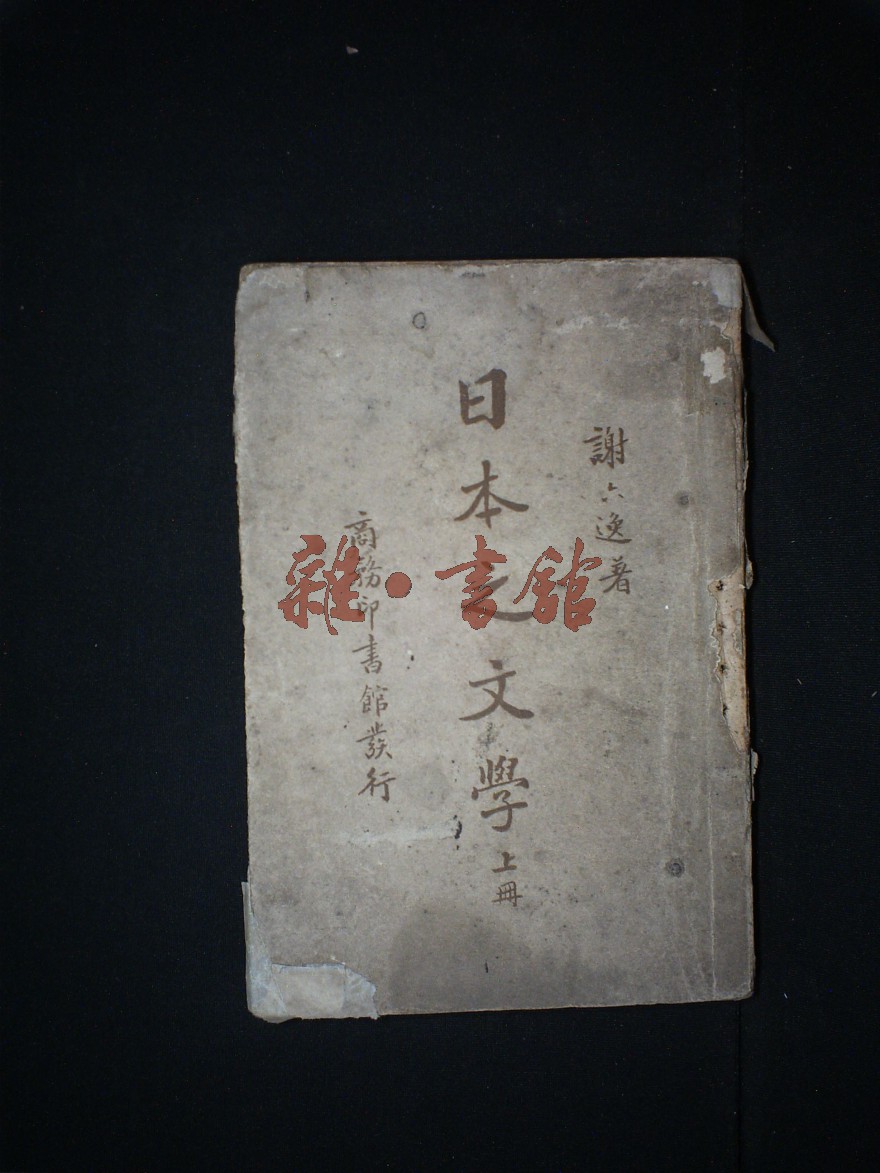 謝六逸著
日本之文學上冊
商務印書館發行
雜·書館